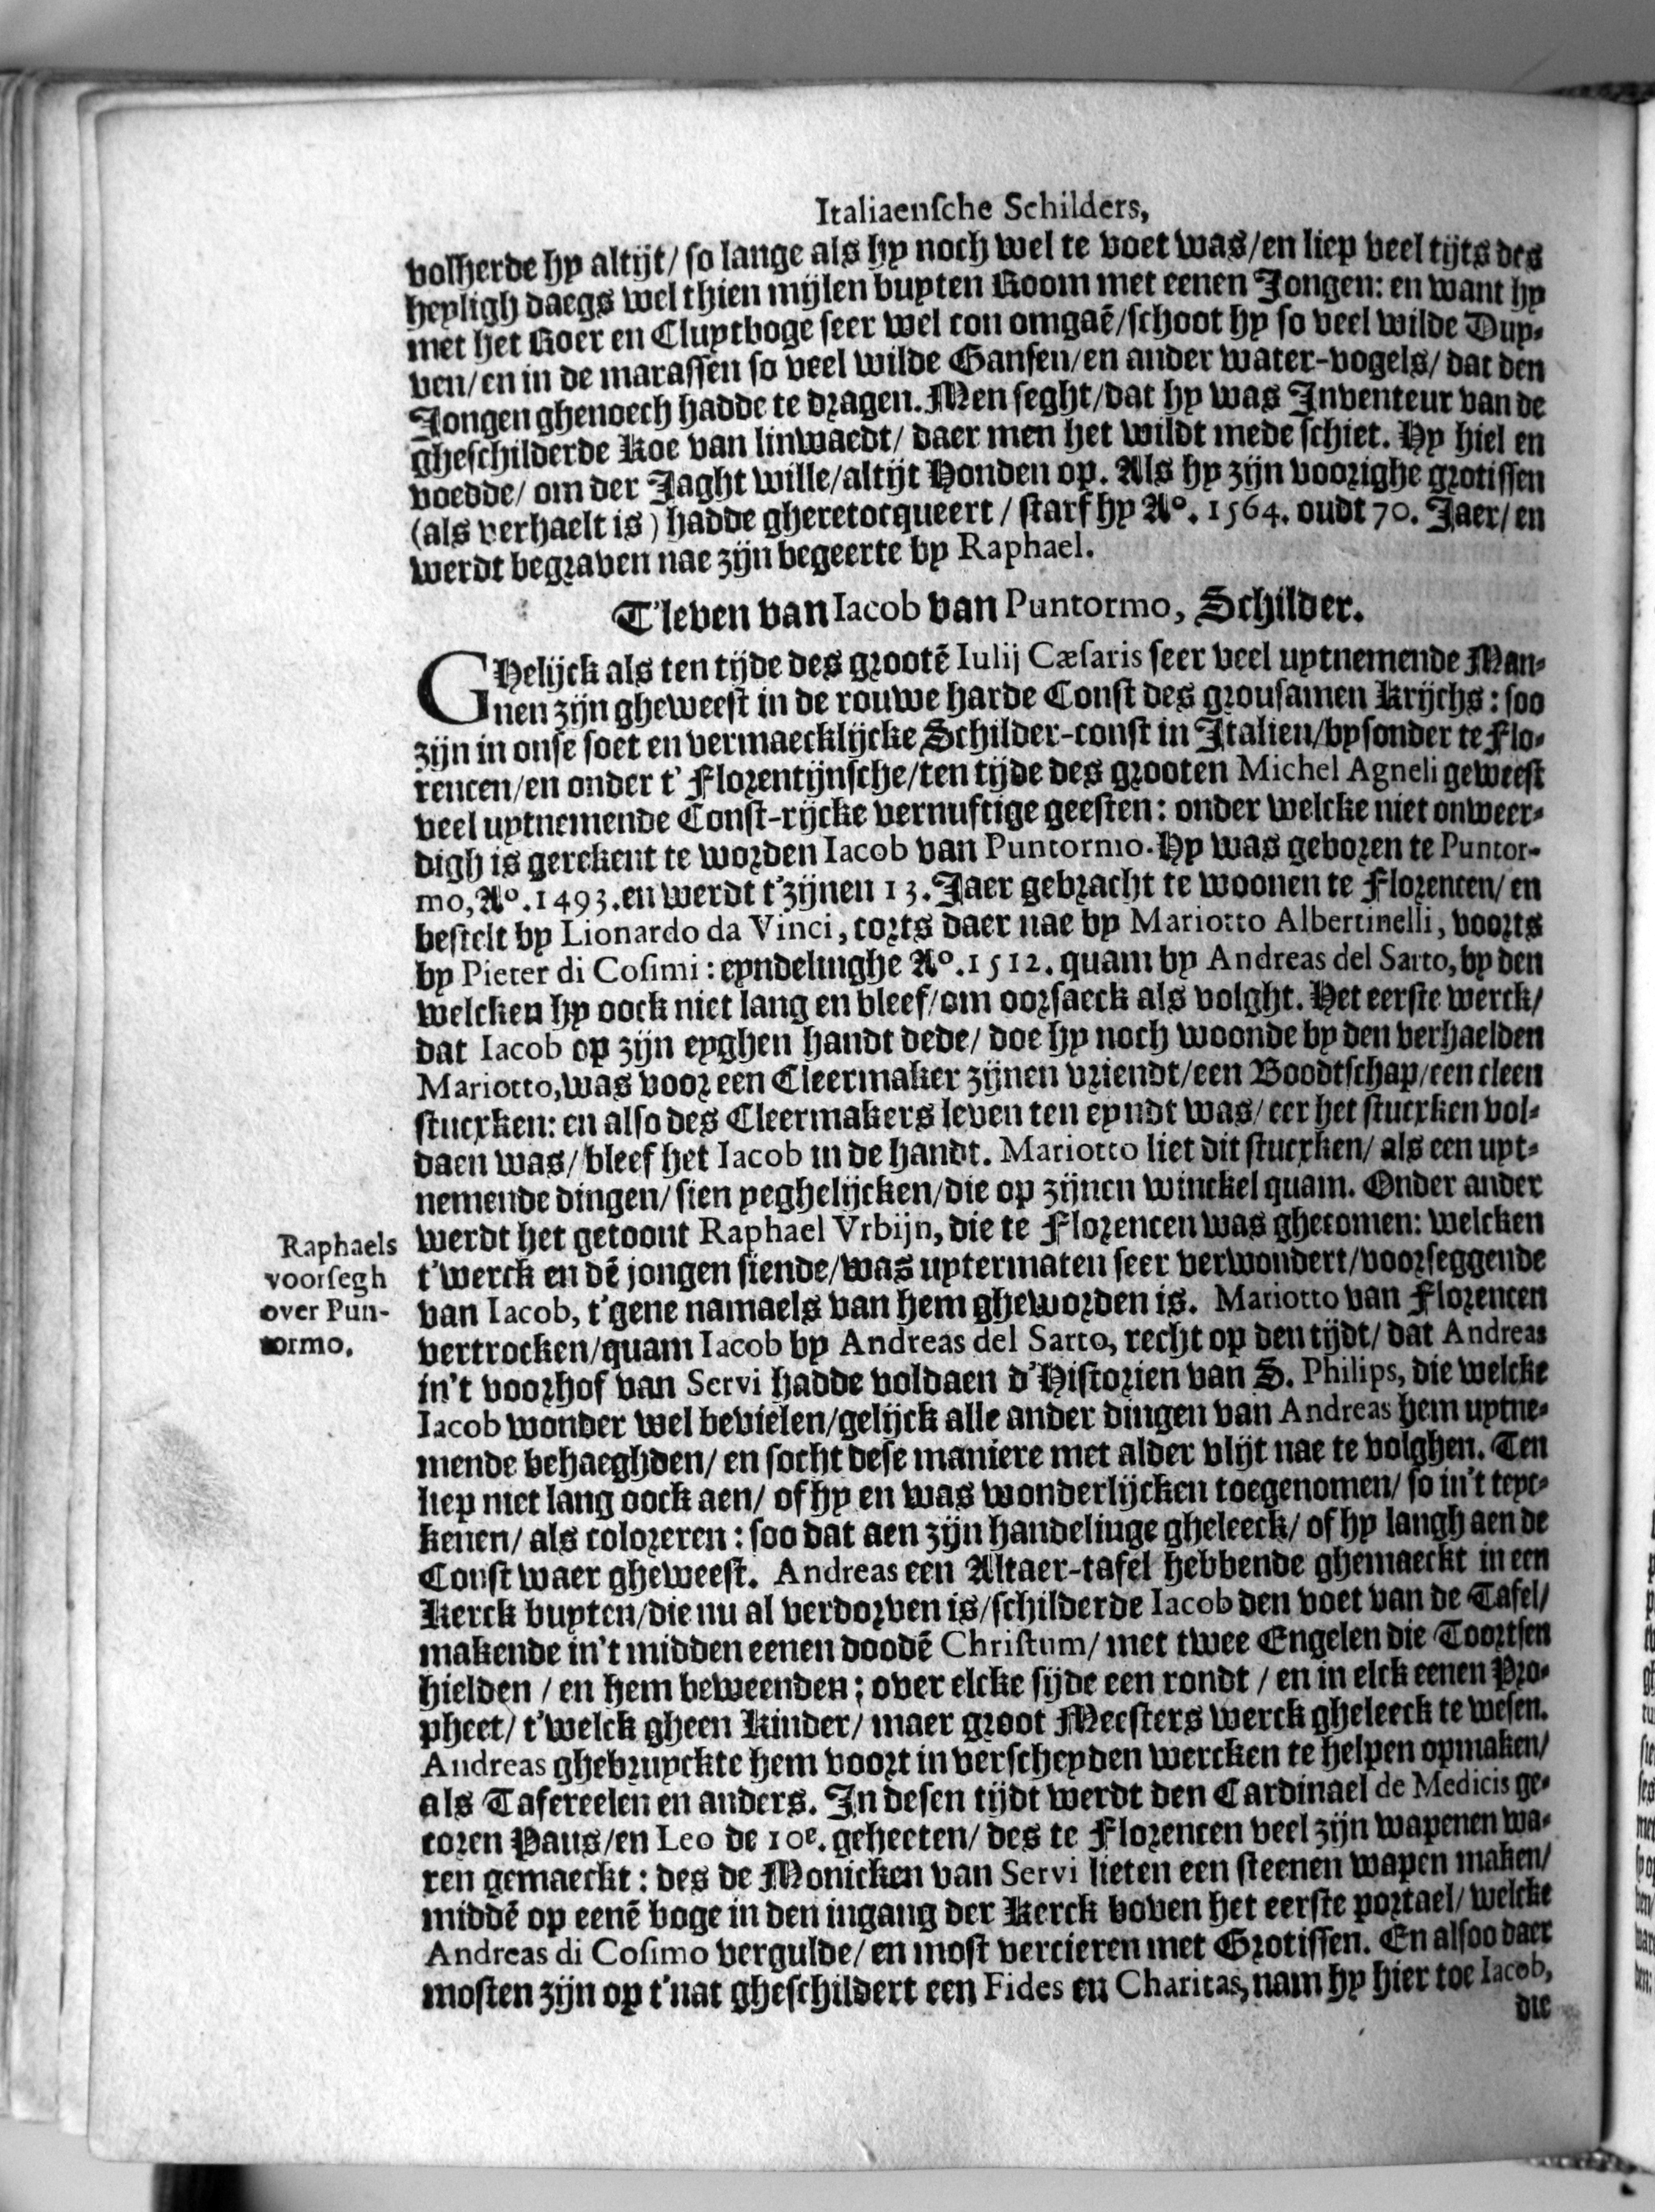 Italiaensche Schilders,
volherde hy altijt/ so lange als hy noch wel te voet was/en liep veel tijts des
heyligh daegs wel thien mijlen buyten Room met eenen Jongen: en want hy
met het Roer en Cluytboge seer wel con omgaē/schoot hy so veel wilde Duy-
ven/en in de marassen so veel wilde Gansen/en ander water-vogels/ dat den
Jongen ghenoech hadde te dragen. Men seght/dat hy was Inventeur van de
gheschilderde Koe van linwaedt/ daer men het wildt mede schiet. Hy hiel en
voedde/ om der Jaght wille/altijt Honden op. Als hy zijn voorighe grotissen
(als verhaelt is) hadde gheretocqueert/ starf hy Aº. 1564. oudt 70. Jaer/ en
werdt begraven nae zijn begeerte by Raphael.
T'leven van Iacob van Puntormo, Schilder.
GHelijck als ten tijde des grootē Iulij Cæsaris seer veel uytnemende Man-
nen zijn gheweest in de rouwe harde Const des grousamen Krijchs: soo
zijn in onse soet en vermaecklijcke Schilder-const in Italien/bysonder te Flo-
rencen/en onder t' Florentijnsche/ten tijde des grooten Michel Agneli geweest
veel uytnemende Const-rijcke vernuftige geesten: onder welcke niet onweer-
digh is gerekent te worden Iacob van Puntormo. Hy was geboren te Puntor-
mo, Aº. 1493. en werdt t'zijnen 13. Jaer gebracht te woonen te Florencen/ en
bestelt by Lionardo da Vinci, corts daer nae by Mariotto Albertinelli, voorts
by Pieter di Cosimi: eyndelinghe Aº. 1512. quam by Andreas del Sarto, by den
welcken hy oock niet lang en bleef/om oorsaeck als volght. Het eerste werck/
dat Iacob op zijn eyghen handt dede/ doe hy noch woonde by den verhaelden
Mariotto, was voor een Cleermaker zijnen vriendt/een Boodtschap/een cleen
stucxken: en also des Cleermakers leven ten eyndt was/ eer het stucxken vol-
daen was/ bleef het Iacob in de handt. Mariotto liet dit stucxken/ als een uyt-
nemende dingen/ sien yeghelijcken/die op zijnen winckel quam. Onder ander
werdt het getoont Raphael Vrbijn, die te Florencen was ghecomen: welcken
t'werck en dē jongen siende/was uytermaten seer verwondert/voorseggende
van Iacob, t'gene namaels van hem gheworden is. Mariotto van Florencen
vertrocken/quam Iacob by Andreas del Sarto, recht op den tijdt/ dat Andreas
in't voorhof van Servi hadde voldaen d'Historien van S. Philips, die welcke
Iacob wonder wel bevielen/gelijck alle ander dingen van Andreas hem uytne-
mende behaeghden/ en socht dese maniere met alder vlijt nae te volghen. Ten
liep niet lang oock aen/ of hy en was wonderlijcken toegenomen/ so in't teyc-
kenen/ als coloreren: soo dat aen zijn handelinge gheleeck/ of hy langh aen de
Const waer gheweest. Andreas een Altaer-tafel hebbende ghemaeckt in een
Kerck buyten/die nu al verdorven is/schilderde Iacob den voet van de Tafel/
makende in't midden eenen doodē Christum/ met twee Engelen die Toortsen
hielden / en hem beweenden; over elcke sijde een rondt / en in elck eenen Pro-
pheet/ t'welck gheen Kinder/ maer groot Meesters werck gheleeck te wesen.
Andreas ghebruyckte hem voort in verscheyden wercken te helpen opmaken/
als Tafereelen en anders. In desen tijdt werdt den Cardinael de Medicis ge-
coren Paus/en Leo de 10e. geheeten/ des te Florencen veel zijn wapenen wa-
ren gemaeckt: des de Monicken van Servi lieten een steenen wapen maken/
middē op eenē boge in den ingang der Kerck boven het eerste portael/ welcke
Andreas di Cosimo vergulde/ en most vercieren met Grotissen. En alsoo daer
mosten zijn op t'nat gheschildert een Fides en Charitas, nam hy hier toe Iacob,
die
Raphaels
voorsegh
over Pun-
tormo.